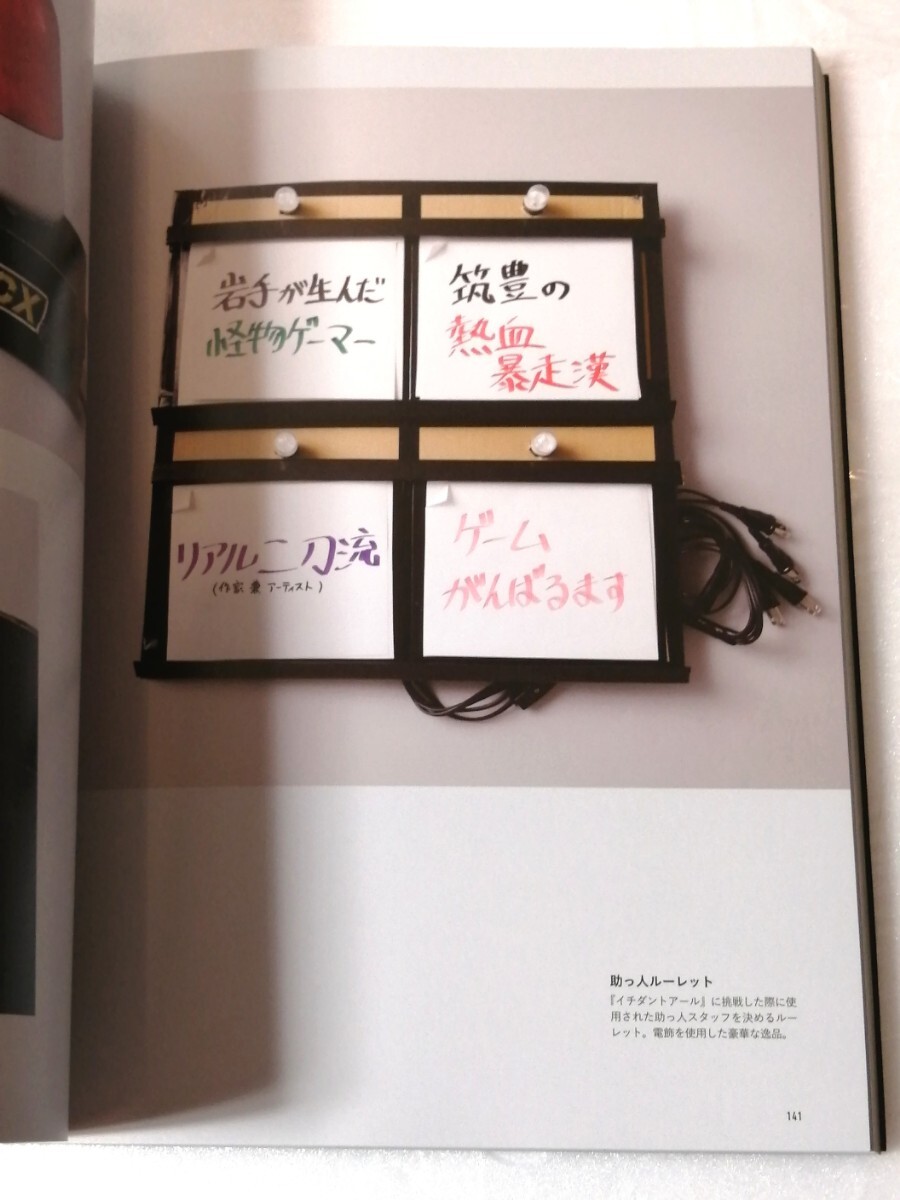 CX
岩手が生んだ
怪物ゲーマー
筑豊の
熱血
暴走漢
リアル二刀流
(作家兼アーティスト)
ゲーム
がんばるます
助っ人ルーレット
『イチダントアール』に挑戦した際に使
用された助っ人スタッフを決めるルー
レット。電飾を使用した豪華な逸品。
141